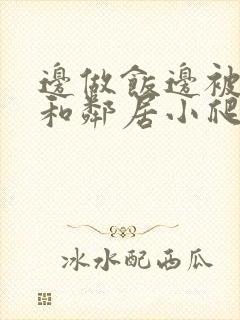 邊做飯邊被
和鄰居小爬
冰水配西瓜